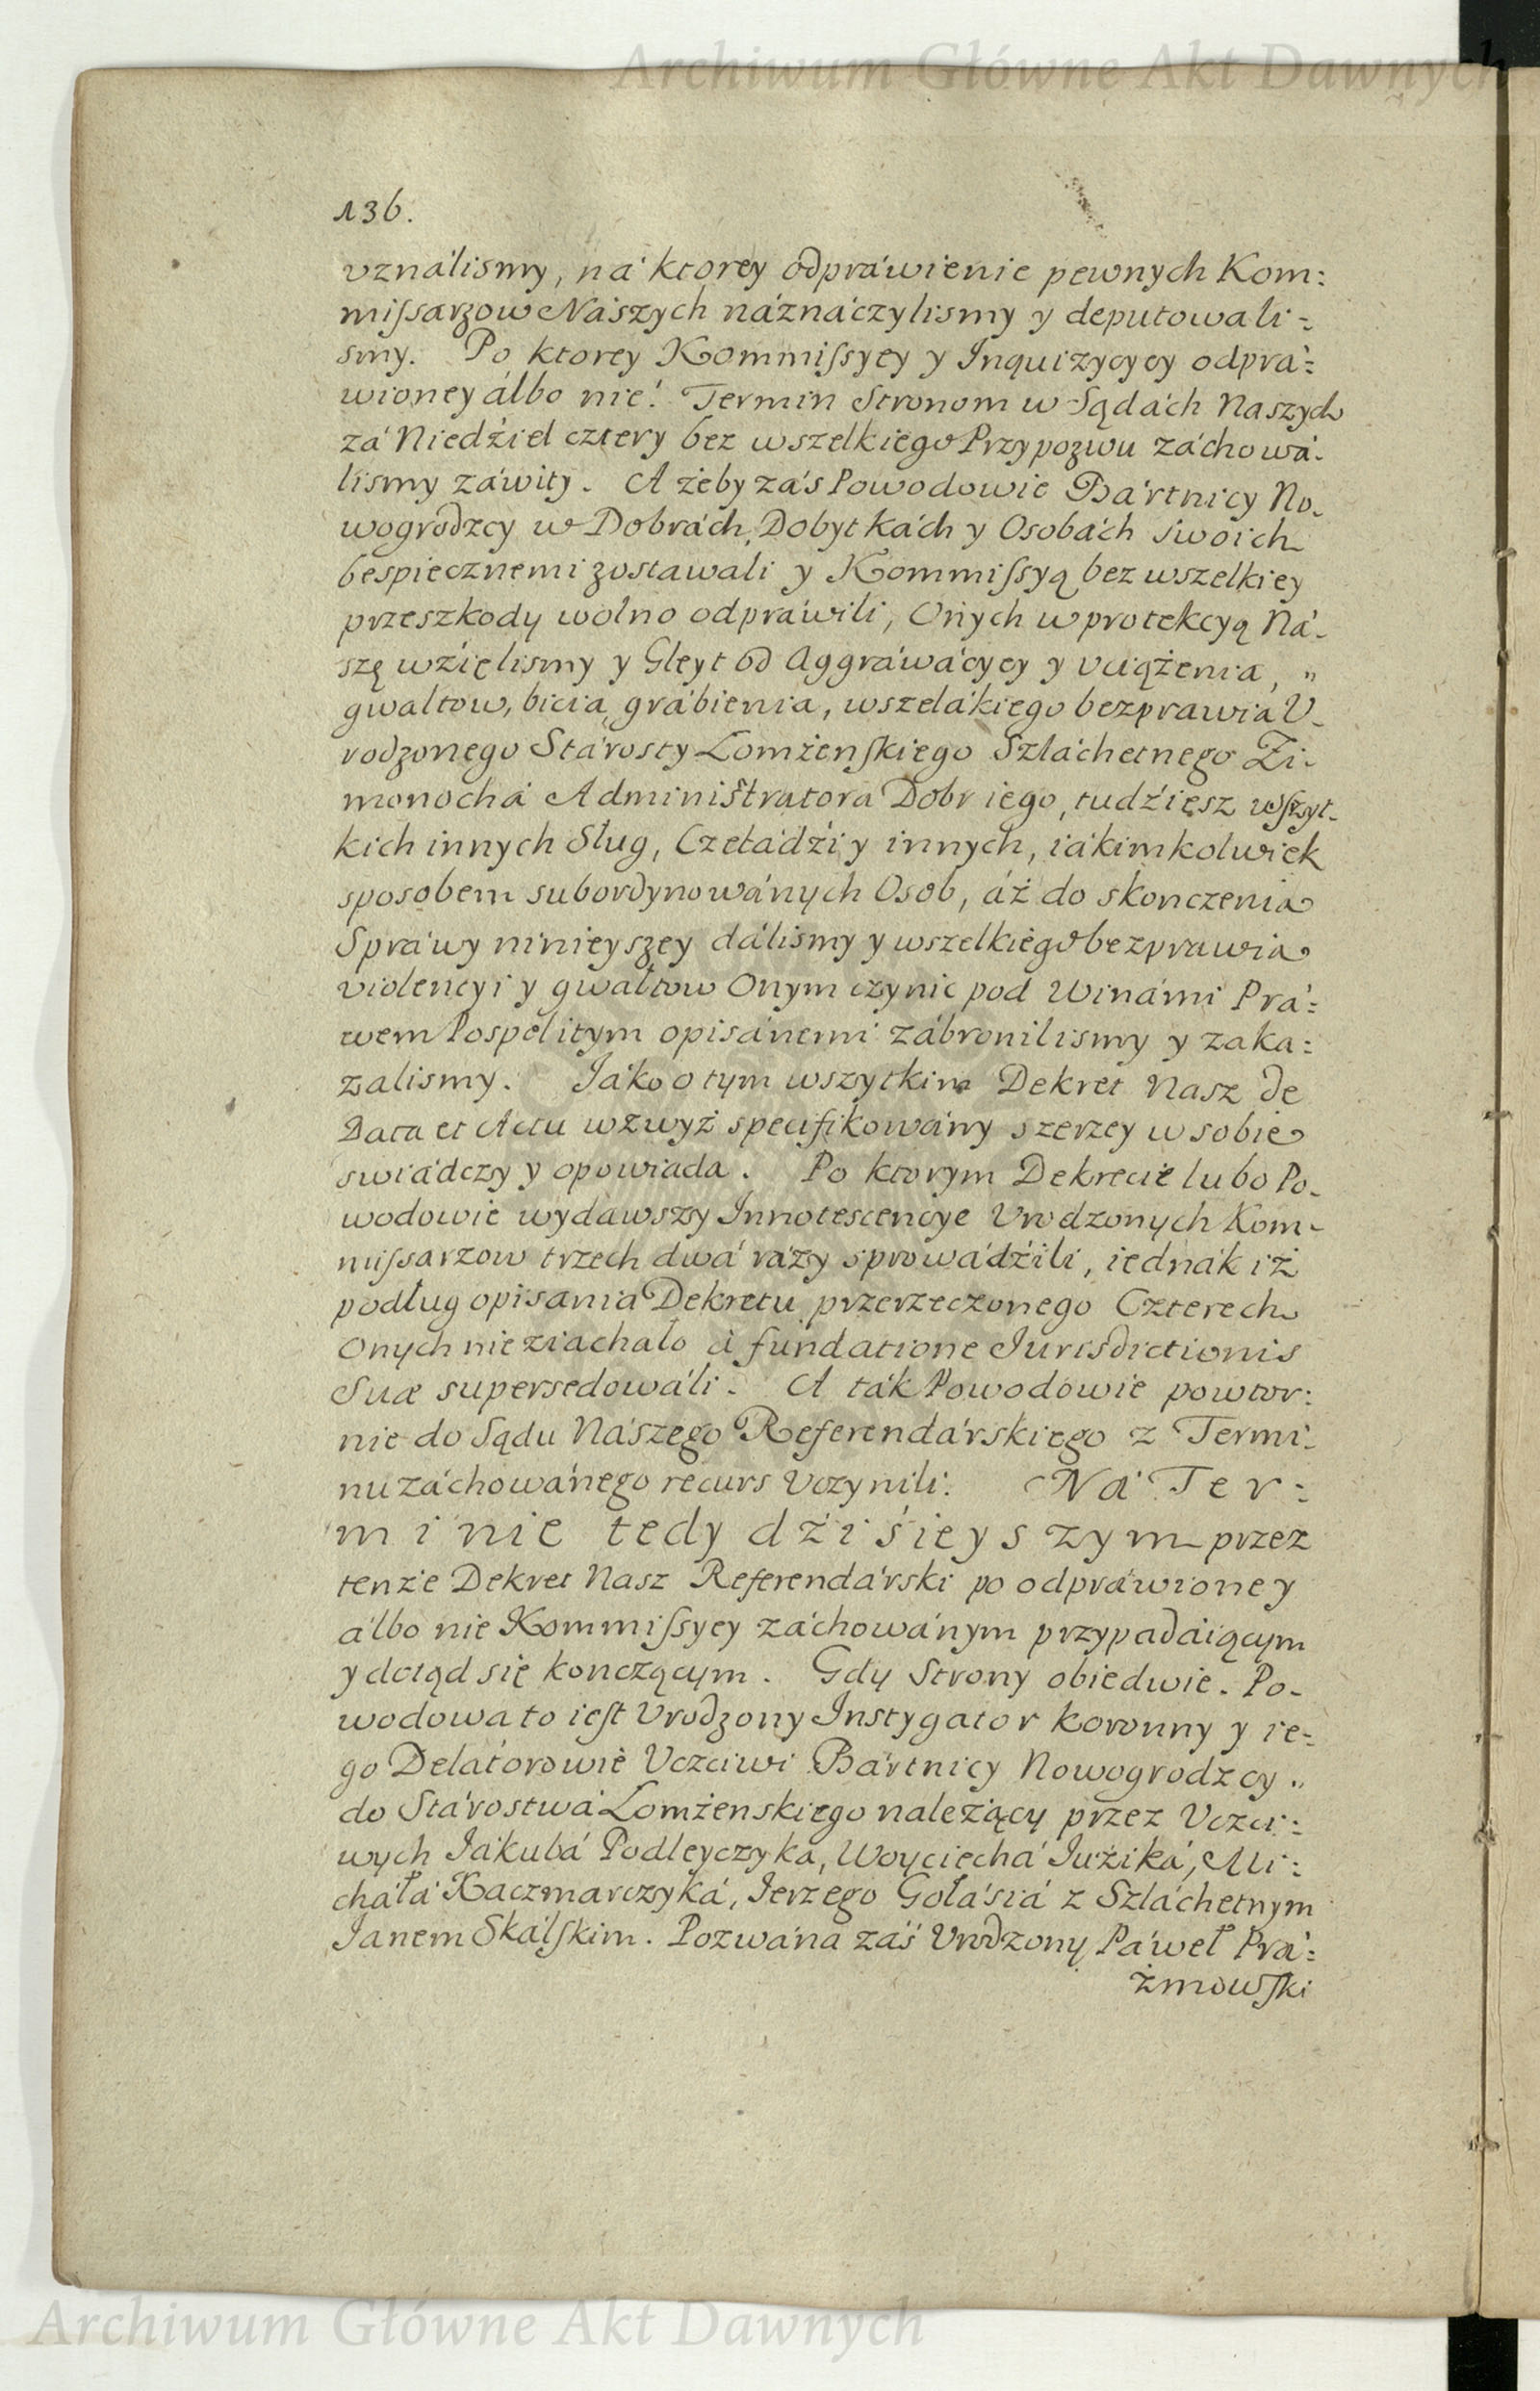 Archiwum Główne Akt Dawnych
136.
vználismy, ná ktorey odpráwienie pewnych Kom:
miſsarzow Nászych náznáczylismy y deputowali=
smy. Po ktorey Kommiſsyey y Inquizycycy odprá:
wioney álbo nie! Termin Stronom w Sądách Naszych
zá Niedźiel cztery bez wszelkiego Przypozwu záchowá-
lismy záwity. A żeby zás Powodowie Bártnicy No-
wogrodzcy w Dobrách, Dobytkách y Osobách swoich
bespiecznemi zostawali y Kommiſsyą bez wszelkiey
przeszkody wolno odpráwili, Onych w protekcyą Ná-
szę wźięlismy y Gleyt od Aggráwácycy y vciążenia, "
gwaltow, bicia, grábienia, wszelákiego bezprawia V-
rodzonego Stárosty Lomżenſkiego Szláchetnego Zi-
monochá Administratora Dobr iego, tudźiesz wſzyt-
kich innych Sług, Czeládźi y innych, iákimkolwiek
sposobem subordynowánych Osob, áż do skonczenia
Spráwy ninieyszey dálismy y wszelkiego bezprawia
violencyi y gwałtow Onym czynic pod Winámi Prá:
wem Pospolitym opisánemi zábronilismy y zaka:
zalismy. Jáko o tym wszytkim Dekret Nasz de
Data et Actu wzwyż specifikowány szerzey w sobie
swiádczy y opowiada. Po ktorym Dekrecie lubo Po-
wodowie wydáwszy Innotescencye Vrodzonych Kom-
miſsarzow trzech dwá rázy sprowádźili, iednák iż
podług opisania Dekretu przerzeczonego Czterech
Onych nie ziachało à fundatione Jurisdictionis
Suæ supersedowáli. A ták Powodowie powtor:
nie do Sądu Nászego Referendárskiego z Termi-
nu záchowánego recurs Vczynili. Ná Ter:
minie tedy dźiśieyszym przez
tenże Dekret Nasz Referendárski po odpráwioney
álbo nie Kommiſsyey záchowánym przypadáiącym
y dotąd się konczącym. Gdy Strony obiedwie. Po-
wodowa to ieſt Vrodzony Instygator koronny y ie=
go Delátorowie Vczciwi Bártnicy Nowogrodzcy "
do Stárostwá Lomżenskiego należący przez Vczci:
wych Jákubá Podleyczyka, Woyciechá Jużiká, Mi:
cháłá Kaczmarczyká, Jerzego Gołásiá z Szláchetnym
Janem Skálſkim. Pozwána zás Vrodzony Páweł Prá:
żmowſki
Archiwum Główne Akt Dawnych